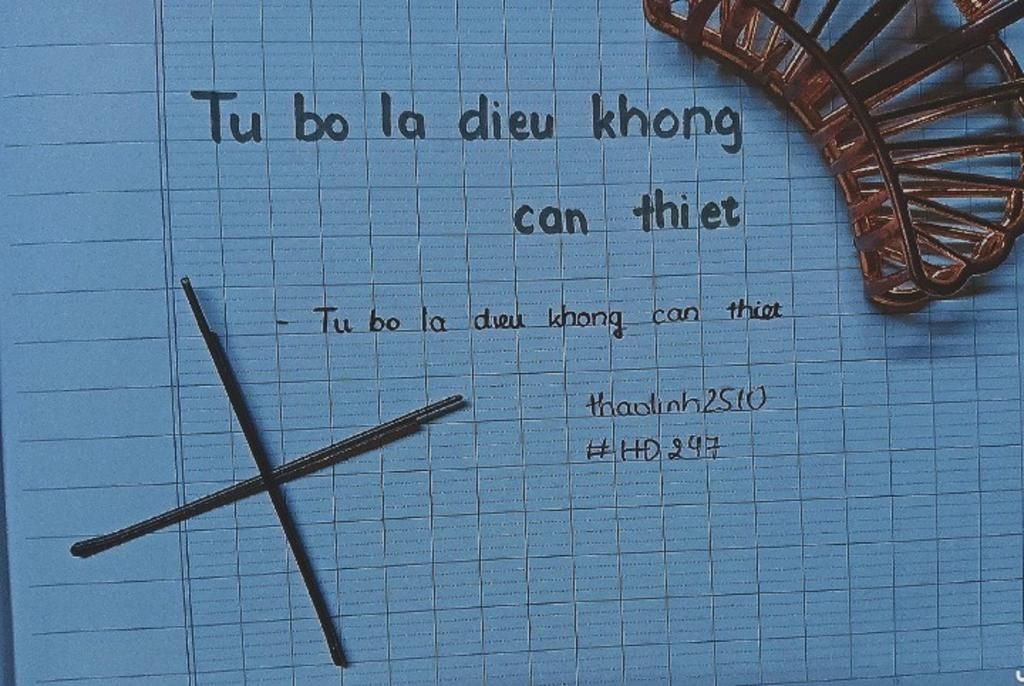 Tu bo la dieu khong
can thiet
- Tu bo la dieu khong can thiet
thaolinh2510
#HD247